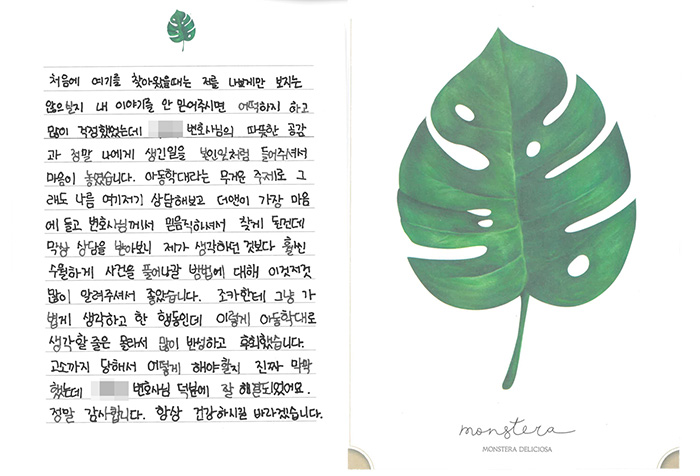 처음에 여기를 찾아왔을때는 저를 나쁘게만 보지는
않으실지 내 이야기를 안 믿어주시면 어떡하지 하고
많이 걱정했었는데 변호사님의 따뜻한 공감
과 정말 나에게 생긴일을 본인일처럼 들어주셔서
마음이 놓였습니다. 아동학대라는 무거운 주제로 그
래도 나름 여기저기 상담해보고 더앤이 가장 마음
에 들고 변호사님께서 믿음직하셔서 찾게 된건데
막상 상담을 받아보니 제가 생각하던 것보다 훨씬
수월하게 사건을 풀어나갈 방법에 대해 이것저것
많이 알려주셔서 좋았습니다. 조카한테 그냥 가
볍게 생각하고 한 행동인데 이렇게 아동학대로
생각할 줄은 몰라서 많이 반성하고 후회했습니다.
고소까지 당해서 어떻게 해야할지 진짜 막막
했는데 변호사님 덕분에 잘 해결되었어요.
정말 감사합니다. 항상 건강하시길 바라겠습니다.
monstera
MONSTERA DELICIOSA